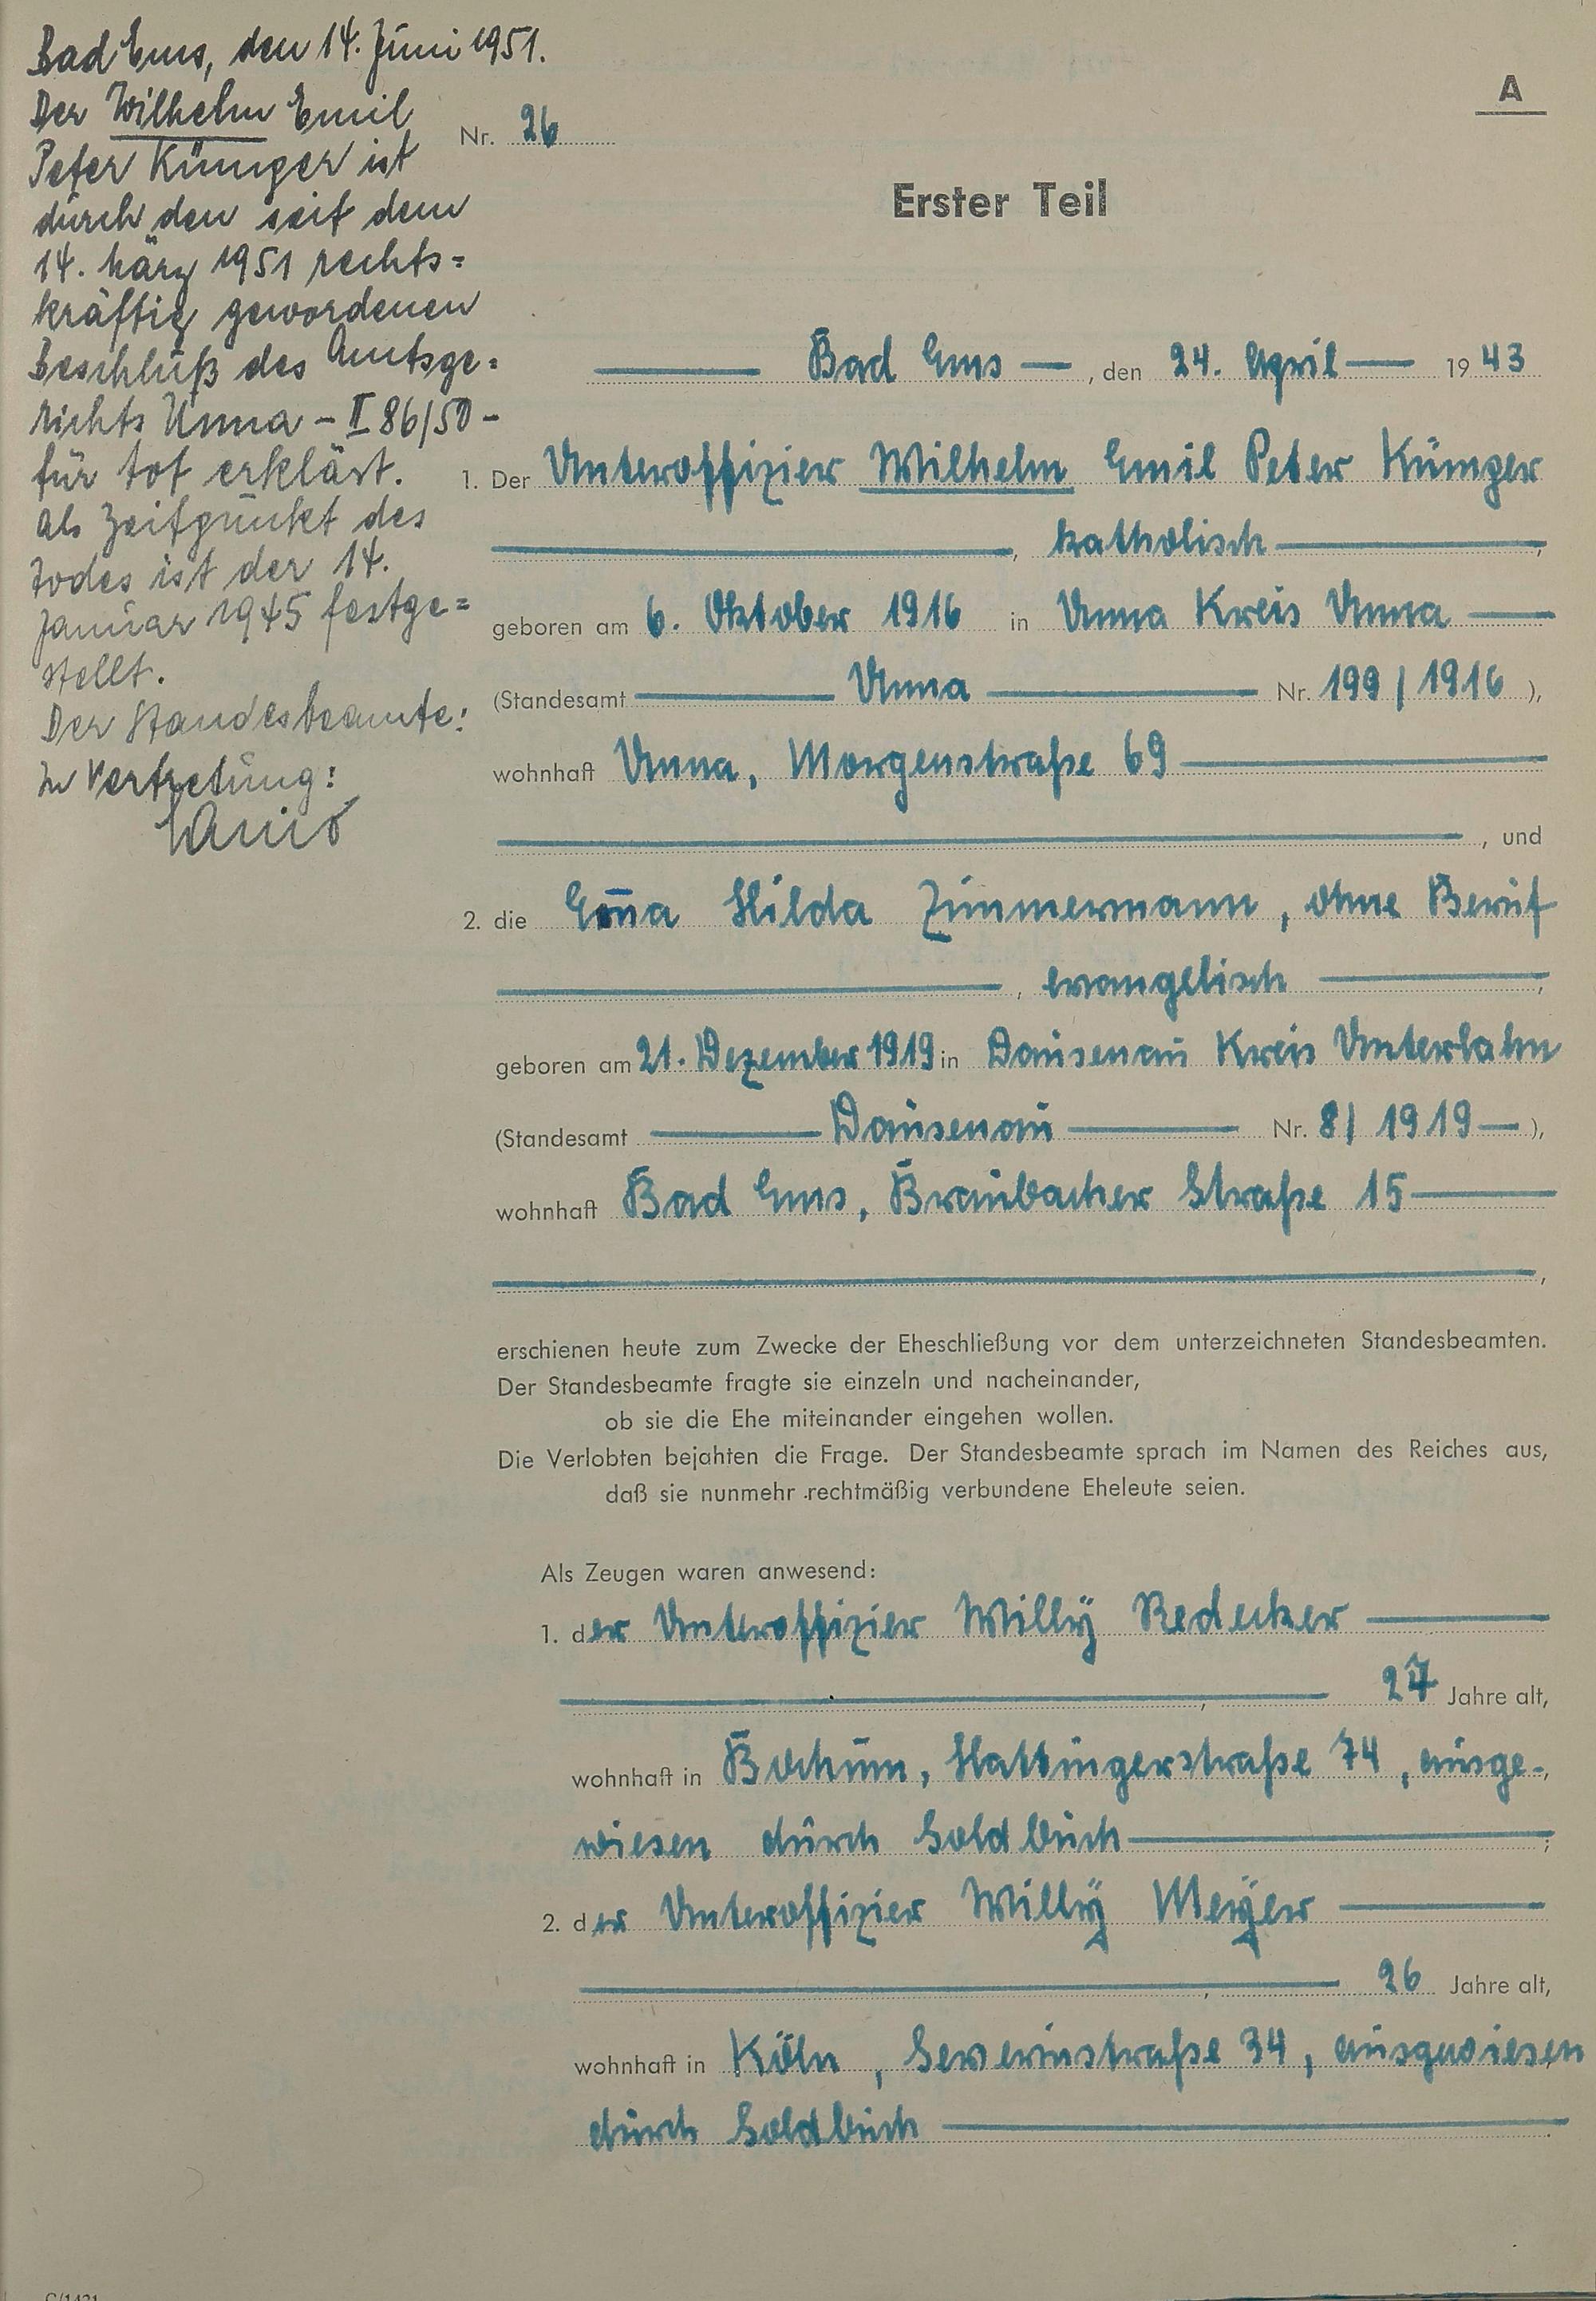 Bad Ems, den 14. Juni 1951.
Der Wilhelm Emil
Peter Künger ist
durch den seit dem
14. März 1951 rechts=
kräftig gewordenen
Beschluß des Amtsge=
richts Unna - II 86/50 -
für tot erklärt.
Als Zeitpunkt des
Todes ist der 14.
Januar 1945 festge=
stellt.
Der Standesbeamte:
In Vertretung:
A
Nr. 26
Erster Teil
Bad Ems, den 24. April 1943
1. Der Unteroffizier Wilhelm Emil Peter Künger
, katholisch,
geboren am 6. Oktober 1916 in Unna Kreis Unna
(Standesamt Unna Nr. 199/1916),
wohnhaft Unna, Morgenstraße 69
, und
2. die Hilda Zimmermann, ohne Beruf
, evangelisch,
geboren am 21. Dezember 1919 in Dausenau Kreis Unterlahn
(Standesamt Dausenau Nr. 8/1919),
wohnhaft Bad Ems, Braubacher Straße 15
,
erschienen heute zum Zwecke der Eheschließung vor dem unterzeichneten Standesbeamten.
Der Standesbeamte fragte sie einzeln und nacheinander,
ob sie die Ehe miteinander eingehen wollen.
Die Verlobten bejahten die Frage. Der Standesbeamte sprach im Namen des Reiches aus,
daß sie nunmehr rechtmäßig verbundene Eheleute seien.
Als Zeugen waren anwesend:
1. der Unteroffizier Willÿ Redecker
, 27 Jahre alt,
wohnhaft in Bochum, Hattingerstraße 74, ausge-,
wiesen durch Soldbuch;
2. der Unteroffizier Willÿ Meÿer
, 26 Jahre alt,
wohnhaft in Köln, Severinstraße 34, ausgewiesen
durch Soldbuch.